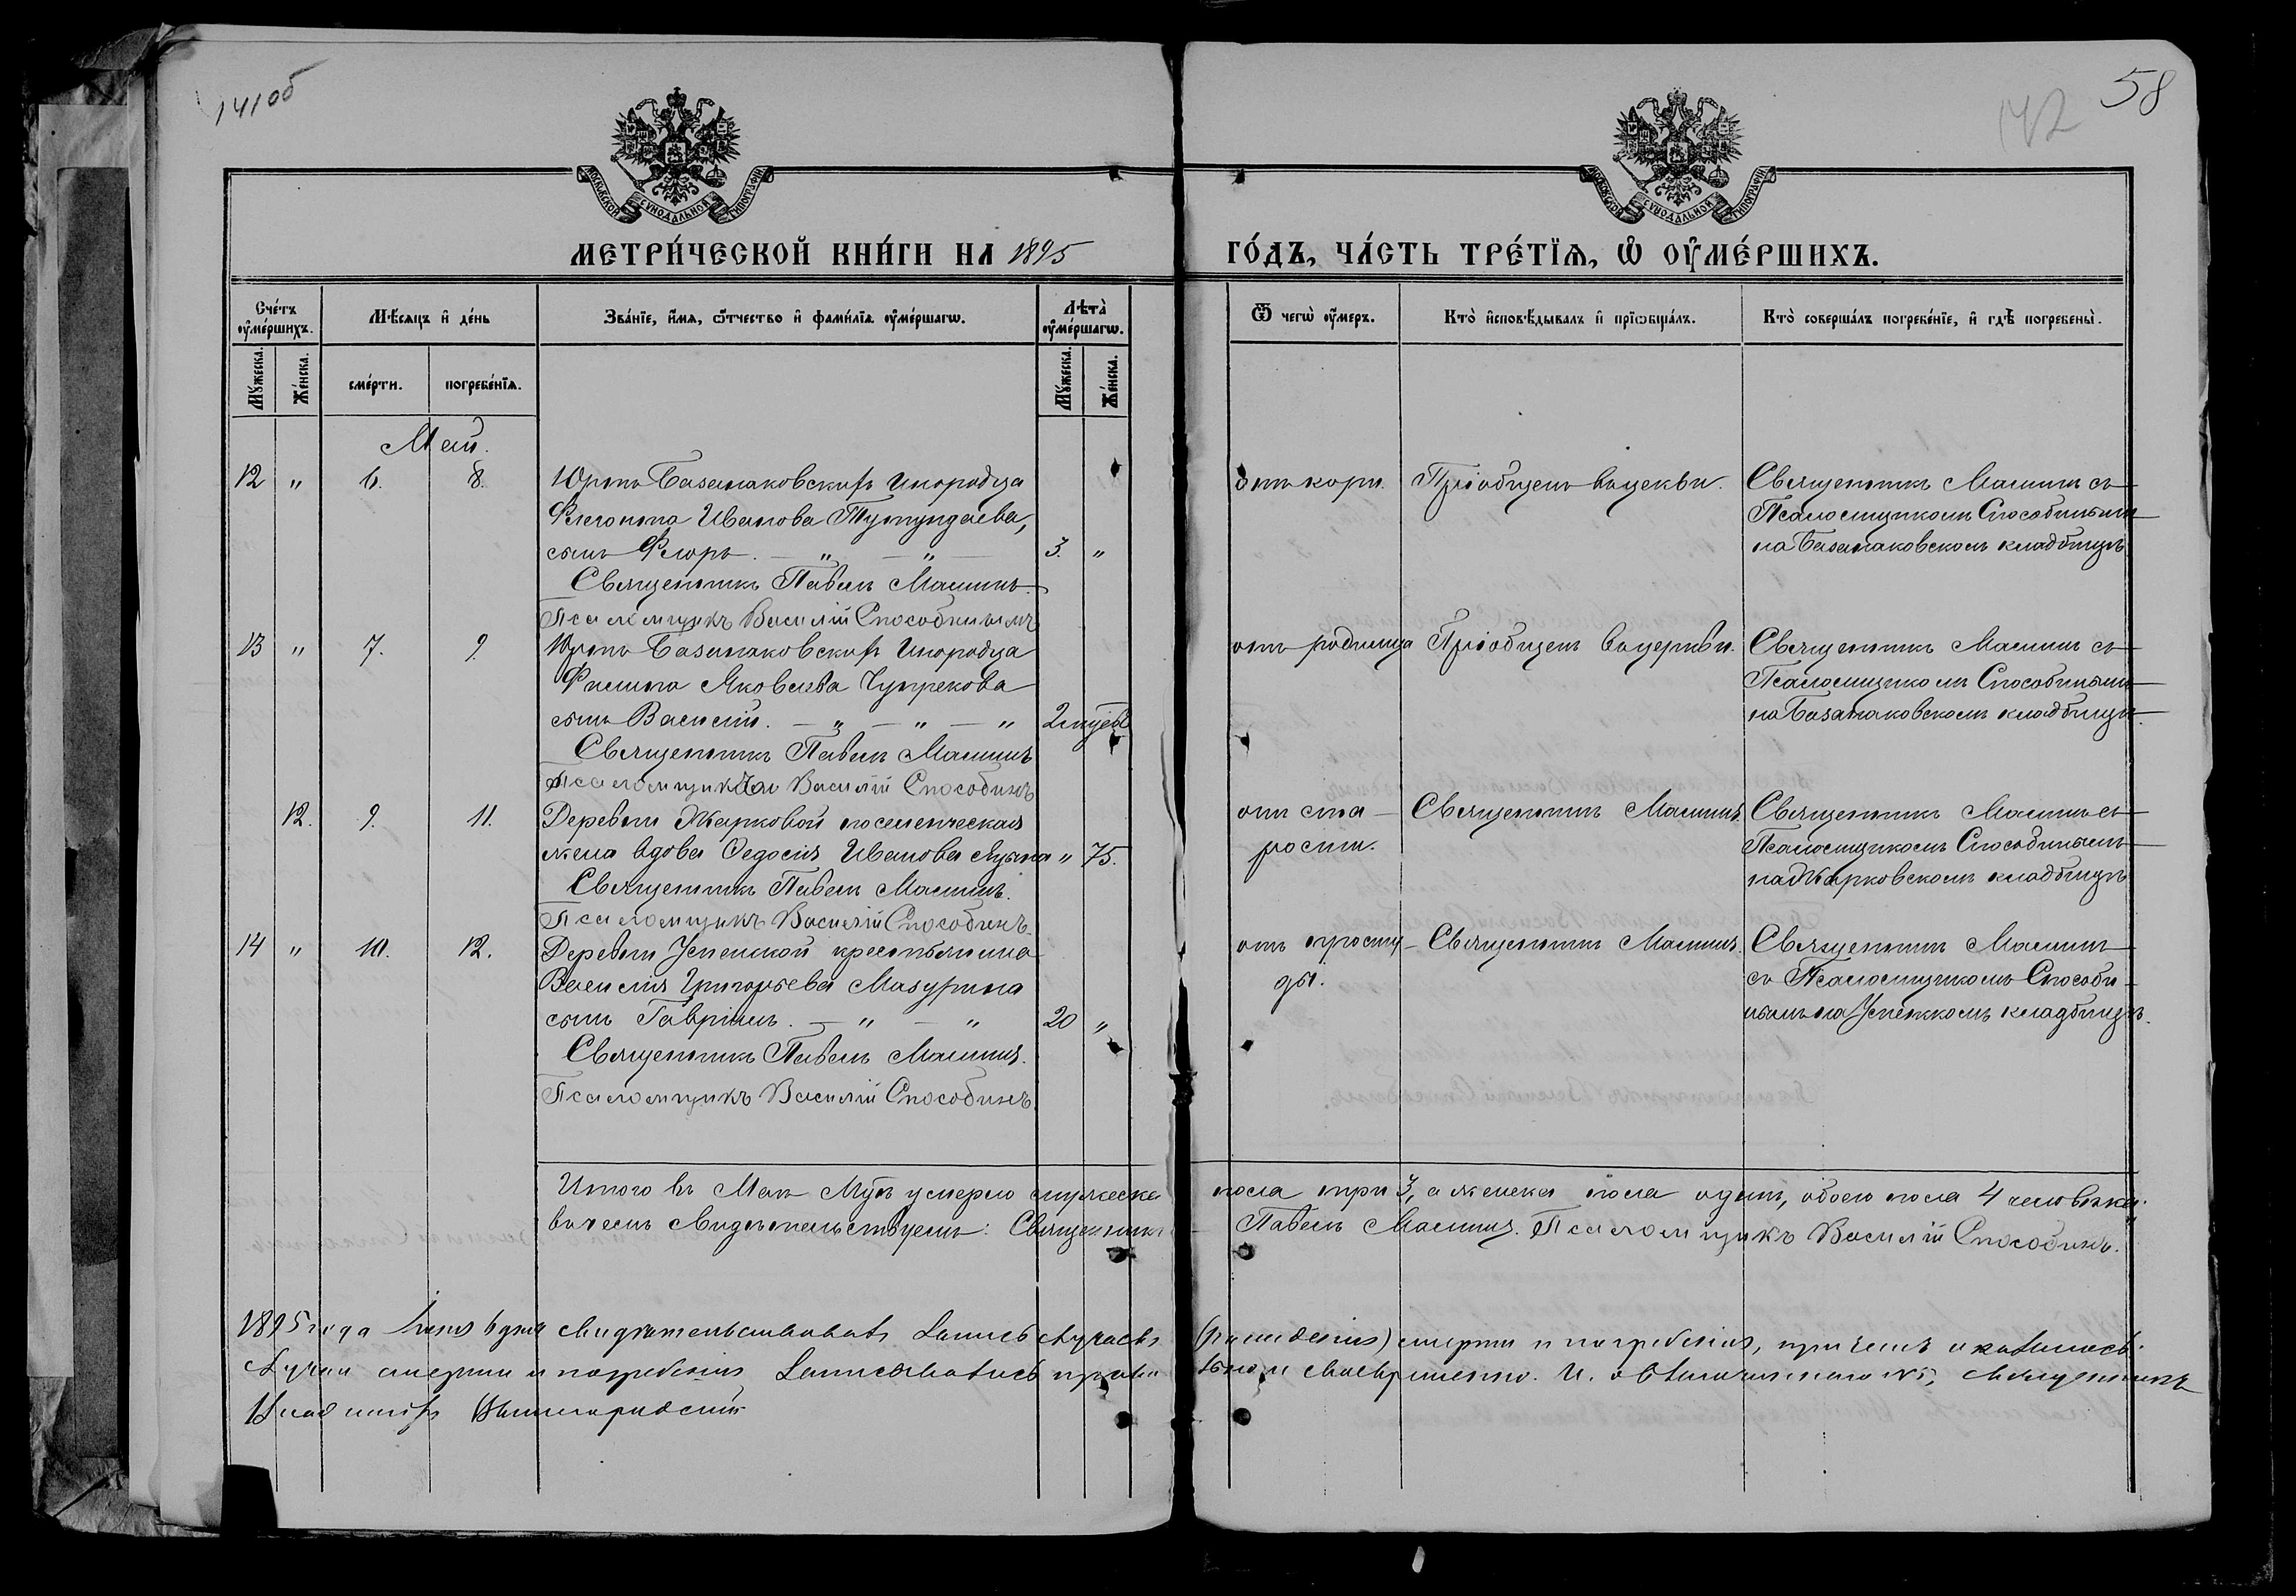 141об
142 58
МОСКОВСКОЙ СѴНОДАЛЬНОЙ ТИПОГРАФІИ
МОСКОВСКОЙ СѴНОДАЛЬНОЙ ТИПОГРАФІИ
МЕТРИ́ЧЕСКОЙ КНИ́ГИ НА 1895 ГО́ДЪ, ЧА́СТЬ ТРЕ́ТЇѦ, Ѡ҆ ОУ҆МЕ́РШИХЪ.
Сче́тъ оу҆ме́ршихъ.
Мѣ́сяцъ и҆ де́нь
Зва́нїе, и҆́мѧ, ѻ҆́тчество и҆ фами́лїѧ оу҆ме́ршагѡ.
Лѣта̀ оу҆ме́ршагѡ.
Ѿ чегѡ̀ оу҆́меръ.
Кто̀ и҆сповѣ́дывалъ и҆ прїѡбща́лъ.
Кто̀ соверша́лъ погребе́нїе, и҆ гдѣ̀ погребены̀.
Мꙋ́жеска. Же́нска. сме́рти. погребе́нїѧ. Мꙋ́жеска. Же́нска.
Май.
12 " 6. 8. Юртъ Базанаковскихъ Инородца
Флегонта Иванова Тутундаева,
сынъ Флоръ. — " — " — 3. "
Священникъ Павелъ Маминъ.
Псаломщикъ Василій Способинымъ
отъ кори. Пріобщенъ въ церкви. Священникъ Маминъ съ
Псаломщикомъ Способинымъ
на Базанаковскомъ кладбищѣ
13 " 7. 9. Юртъ Базанаковскихъ Инородца
Филипа Яковлева Чупрекова
сынъ Василій. — " — " — "
Священникъ Павелъ Маминъ
Псаломщикъ Василій Способинъ
отъ родимца Пріобщенъ въ церкви. Священникъ Маминъ съ
Псаломщикомъ Способинымъ
на Базанаковскомъ кладбищѣ.
12. 9. 11. Деревни Жарковой поселенческая
жена вдова Ѳедосія Иванова " 75.
Священникъ Павелъ Маминъ.
Псаломщикъ Василій Способинъ.
отъ ста-
рости.
Священникъ Маминъ. Священникъ Маминъ съ
Псаломщикомъ Способинымъ
на Жарковскомъ кладбищѣ
14 " 10. 12. Деревни Успенской крестьянина
Василія Григорьева Мазурина
сынъ Гавріилъ. — " — " 20 "
Священникъ Павелъ Маминъ.
Псаломщикъ Василій Способинъ.
отъ просту-
ды.
Священникъ Маминъ. Священникъ Маминъ
съ Псаломщикомъ Способи-
нымъ на Успенскомъ кладбищѣ.
Итого въ Маѣ Мцѣ умерло мужеска пола три 3, а женска пола одинъ, обоего пола 4 человѣка.
въ чемъ свидѣтельствуемъ: Священникъ Павелъ Маминъ. Псаломщикъ Василій Способинъ.
1895 года Іюня 6 дня свидѣтельствовавъ запись случаевъ смерти и погребенія, при чемъ оказалось:
случаи смерти и погребенія записывались правильно и своевременно. И. об. благочиннаго № 5, священникъ